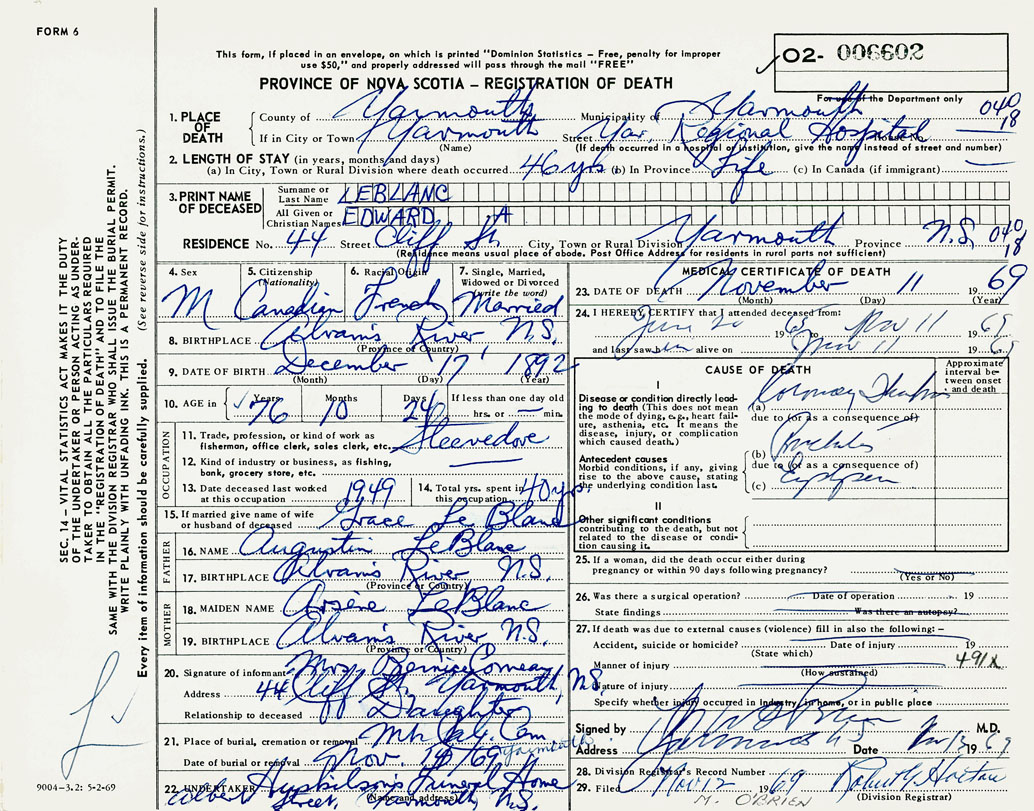 FORM 6
This form, if placed in an envelope, on which is printed "Dominion Statistics – Free, penalty for improper
use $50," and properly addressed will pass through the mail "FREE"
O2- 006602
For use of the Department only
PROVINCE OF NOVA SCOTIA – REGISTRATION OF DEATH
1. PLACE OF DEATH
County of Yarmouth Municipality of Yarmouth 040
If in City or Town Yarmouth Street Yar. Regional Hospital 18
(Name) (If death occurred in a hospital or institution, give the name instead of street and number)
2. LENGTH OF STAY (in years, months and days)
(a) In City, Town or Rural Division where death occurred 46 yrs (b) In Province Life (c) In Canada (if immigrant)
3. PRINT NAME OF DECEASED
Surname or Last Name LEBLANC
All Given or Christian Names EDWARD A
RESIDENCE No. 44 Street Cliff St. City, Town or Rural Division Yarmouth Province N.S. 040
(Residence means usual place of abode. Post Office Address for residents in rural parts not sufficient) 18
4. Sex M
5. Citizenship (Nationality) Canadian
6. Racial Origin French
7. Single, Married, Widowed or Divorced (write the word) Married
8. BIRTHPLACE River N.S.
(Province or Country)
9. DATE OF BIRTH December 17, 1892
(Month) (Day) (Year)
10. AGE in Years 76 Months 10 Days 24 If less than one day old hrs. or min.
OCCUPATION
11. Trade, profession, or kind of work as fisherman, office clerk, sales clerk, etc. Steevedore
12. Kind of industry or business, as fishing, bank, grocery store, etc.
13. Date deceased last worked at this occupation 1949
14. Total yrs. spent in this occupation 40 yrs.
15. If married give name of wife or husband of deceased Grace Le Blanc
FATHER
16. NAME Augustin LeBlanc
17. BIRTHPLACE River N.S.
(Province or Country)
MOTHER
18. MAIDEN NAME Arsène LeBlanc
19. BIRTHPLACE River N.S.
(Province or Country)
20. Signature of informant Mrs. Bernice Comeau
Address 44 Cliff St. Yarmouth, N.S.
Relationship to deceased Daughter
21. Place of burial, cremation or removal Cem
Date of burial or removal Nov. 14/69 Yarmouth
22. UNDERTAKER Funeral Home
(Name and address)
Street, N.S.
MEDICAL CERTIFICATE OF DEATH
23. DATE OF DEATH November 11 1969
(Month) (Day) (Year)
24. I HEREBY CERTIFY that I attended deceased from:
June 20 19 to Nov 11 1969
and last saw alive on Nov 11 19
CAUSE OF DEATH
Approximate interval between onset and death
I
Disease or condition directly leading to death (This does not mean the mode of dying, e.g., heart failure, asthenia, etc. It means the disease, injury, or complication which caused death.)
(a) Coronary
due to (or as a consequence of)
Antecedent causes
Morbid conditions, if any, giving rise to the above cause, stating the underlying condition last.
(b)
due to (or as a consequence of)
(c)
II
Other significant conditions
contributing to the death, but not related to the disease or condition causing it.
25. If a woman, did the death occur either during pregnancy or within 90 days following pregnancy?
(Yes or No)
26. Was there a surgical operation? Date of operation 19
State findings Was there an autopsy?
27. If death was due to external causes (violence) fill in also the following: –
Accident, suicide or homicide? Date of injury 19
(State which) 491X
Manner of injury
(How sustained)
Nature of injury
Specify whether injury occurred in industry, in home, or in public place
Signed by M.D.
Address Yarmouth NS Date 1969
28. Division Registrar's Record Number
29. Filed Nov 12 1969
(Division Registrar)
M. O'BRIEN
SEC. 14 – VITAL STATISTICS ACT MAKES IT THE DUTY
OF THE UNDERTAKER OR PERSON ACTING AS UNDER-
TAKER TO OBTAIN ALL THE PARTICULARS REQUIRED
IN THE "REGISTRATION OF DEATH" AND TO FILE THE
SAME WITH THE DIVISION REGISTRAR WHO SHALL ISSUE THE BURIAL PERMIT.
WRITE PLAINLY WITH UNFADING INK. THIS IS A PERMANENT RECORD.
Every item of information should be carefully supplied. (See reverse side for instructions.)
9004–3.2: 5-2-69